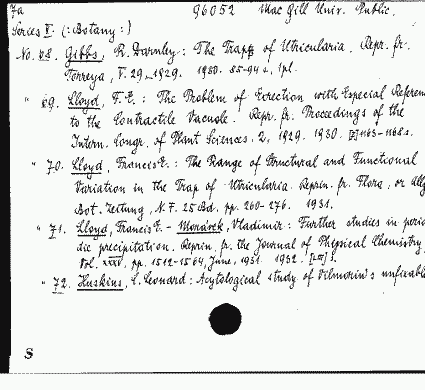 7a 96052 Mac Gill Univ. Public.
Series X. (: Botany :)
No. 68. Gibbs, R. Darnley : The Traps of Utricularia. Repr. fr.
Torreya, V. 29, 1929. 1930. 85-94 s, 1 pl.
" 69. Lloyd, F. E. : The Problem of Erection with Especial Referen
to the Contractile Vacuole. Repr. fr. Proceedings of the
Intern. Congr. of Plant Sciences. 2, 1929. 1930. 1163-1168 s.
" 70. Lloyd, Francis E. : The Range of Structural and Functional
Variation in the Trap of Utricularia. Reprin. fr. Flora, or Allg.
Bot. Zeitung, N. F. 25 Bd. pp. 260-276. 1931.
" 71. Lloyd, Francis E. - Moravek, Vladimir : Further studies in perio
dic precipitation. Reprin. fr. the Journal of Physical Chemistry,
Vol. XXXV, pp. 1512-1564, June, 1931. 1932.
" 72. Huskins, C. Leonard : A cytological study of Vilmorin's unfixable
S